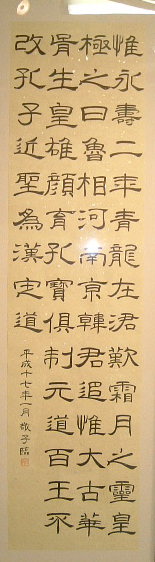 惟永壽二年青龍在涒歎霜月之靈皇
極之日魯相河南京韓君追惟大古華
胥生皇雄顏育孔寶俱制元道百王不
改孔子近聖為漢定道
平成十七年一月 敬子臨